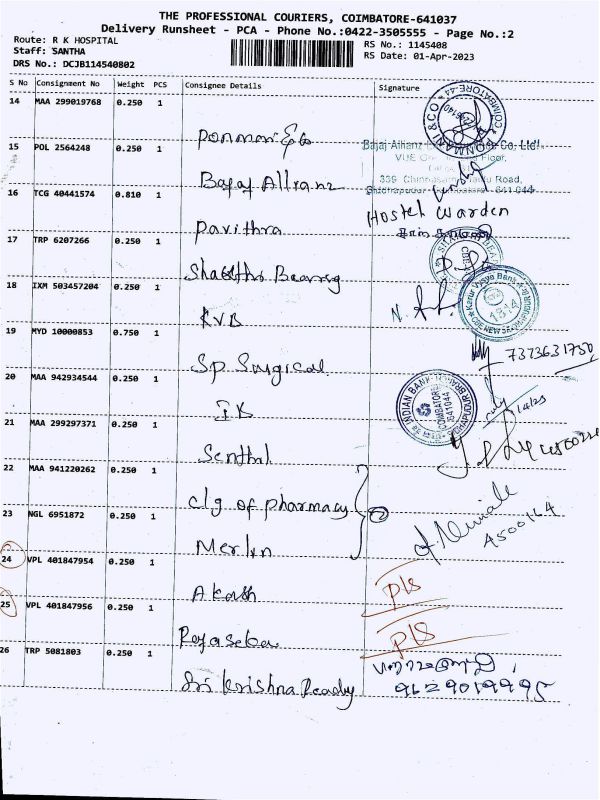 THE PROFESSIONAL COURIERS, COIMBATORE-641037
Delivery Runsheet - PCA - Phone No.:0422-3505555 - Page No.:2
Route: R K HOSPITAL
RS No.: 1145408
Staff: SANTHA
RS Date: 01-Apr-2023
DRS No.: DCJB114540802
S No Consignment No Weight PCS Consignee Details Signature
14 MAA 299019768 0.250 1
PONMANI & CO COIMBATORE-44
15 POL 2564248 0.250 1
Bajaj Allianz Co. Ltd
Floor,
Bajaj Allianz
339, Road,
16 TCG 40441574 0.810 1
Hostel Warden
Pavithra
17 TRP 6207266 0.250 1
Bearing
18 IXM 503457204 0.250 1
Karur Vysya Bank
1814
KVB
19 MYD 10000853 0.750 1
7373631750
Sp Surgical
20 MAA 942934544 0.250 1
INDIAN BANK
COIMBATORE
641044
IB
21 MAA 299297371 0.250 1
Senthil
22 MAA 941220262 0.250 1
clg of pharmacy
23 NGL 6951872 0.250 1
4500164
Merlin
24 VPL 401847954 0.250 1
Akash
PLS
25 VPL 401847956 0.250 1
PLS
26 TRP 5081803 0.250 1
9629019995
Sri Krishna Ready